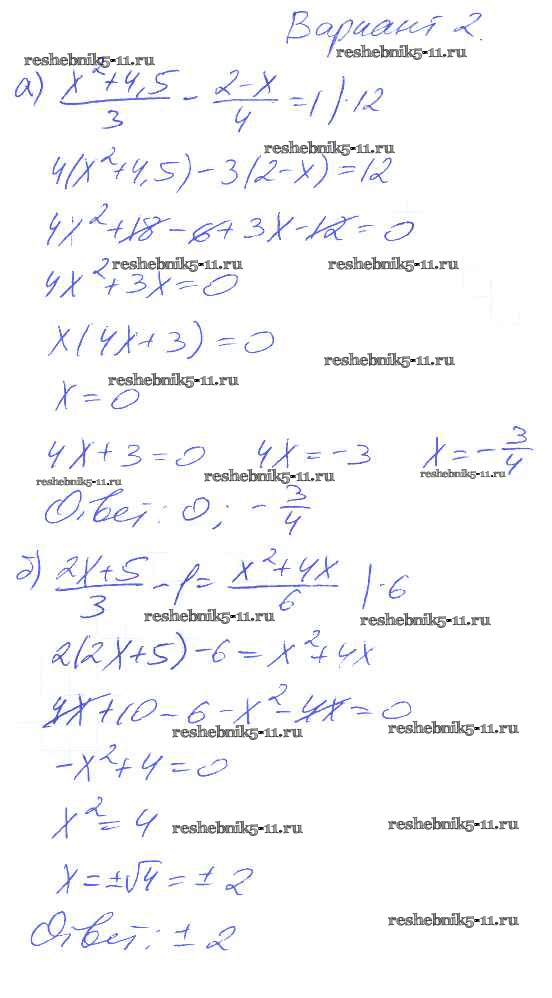 Вариант 2.
reshebnik5-11.ru reshebnik5-11.ru
а) (x²+4,5)/3 - (2-x)/4 = 1 |·12
reshebnik5-11.ru
4(x²+4,5)-3(2-x)=12
4x²+18-6+3x-12=0
reshebnik5-11.ru reshebnik5-11.ru
4x²+3x=0
x(4x+3)=0
reshebnik5-11.ru
reshebnik5-11.ru
x=0
4x+3=0 4x=-3 x=-3/4
reshebnik5-11.ru reshebnik5-11.ru reshebnik5-11.ru
Ответ: 0; -3/4
б) (2x+5)/3 - 1 = (x²+4x)/6 |·6
reshebnik5-11.ru reshebnik5-11.ru
2(2x+5)-6=x²+4x
4x+10-6-x²-4x=0
reshebnik5-11.ru reshebnik5-11.ru
-x²+4=0
x²=4
reshebnik5-11.ru reshebnik5-11.ru
x=±√4=±2
reshebnik5-11.ru
Ответ: ±2